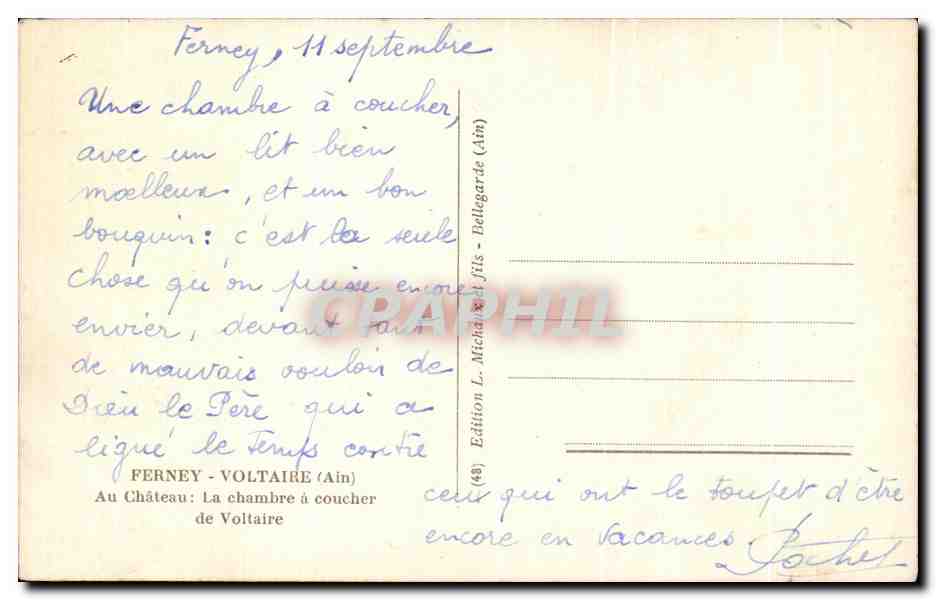 Ferney, 11 septembre
Une chambre à coucher,
avec un lit bien
moelleux, et un bon
bouquin : c'est la seule
chose qu'on puisse encore
envier, devant tant
de mauvais vouloir de
Dieu le Père qui a
ligué le temps contre
ceux qui ont le toupet d'être
encore en vacances.
FERNEY - VOLTAIRE (Ain)
Au Château : La chambre à coucher
de Voltaire
(48) Edition L. Michaux et fils - Bellegarde (Ain)
CPAPHIL